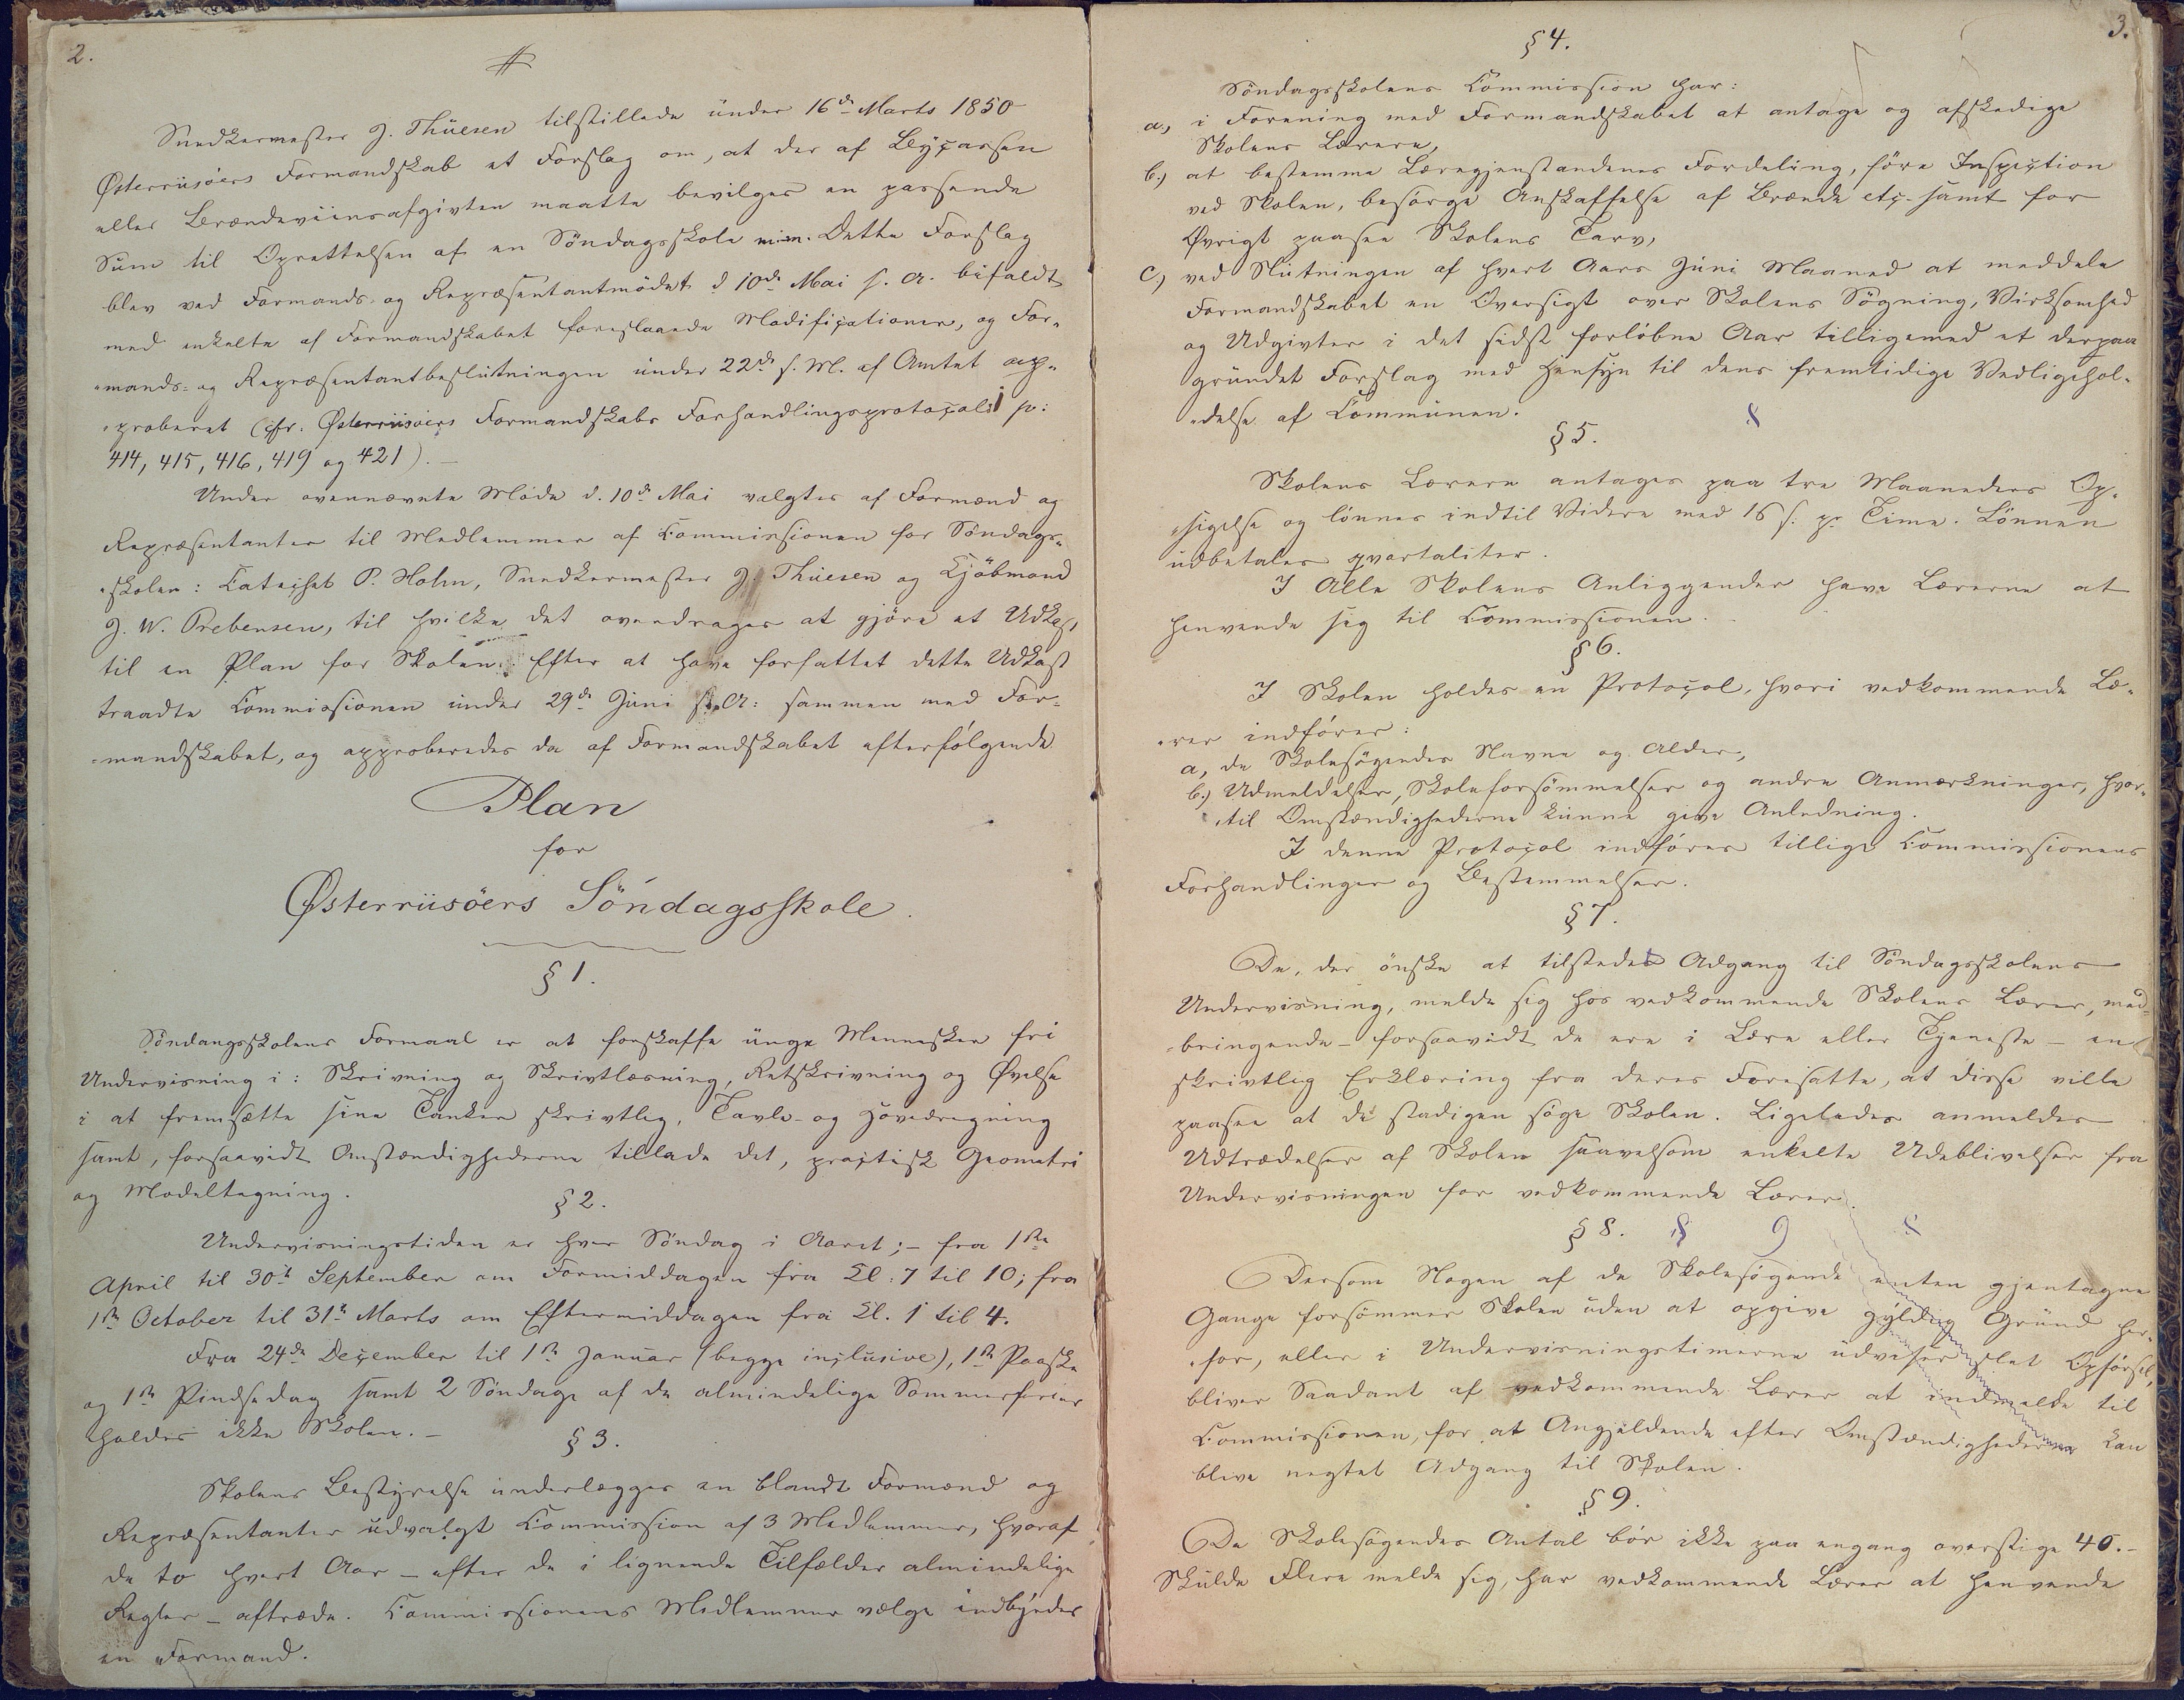 2.
Snedkermester J. Thüesen tilstillede under 16de Marts 1850
Østerriisöers Formandskab et Forslag om, at der af Bycassen
eller Brændeviinsafgivten maatte bevilges en passende
Sum til Oprettelsen af en Söndagsskole m.m. Dette Forslag
blev ved Formands- og Repræsentantmödet d 10de Mai s. A. bifaldt
med enkelte af Formandskabet foreslaaede Modificationer, og For-
-mands- og Repræsentantbeslutningen under 22de s. M. af Amtet ap-
-proberet (cfr. Østerriisöers Formandskabs Forhandlingsprotocol i p:
414, 415, 416, 419 og 421). –
Under ovennævnte Möde d. 10de Mai valgtes af Formænd og
Repræsentanter til Medlemmer af Commissionen for Söndags-
-skolen: Catechet P. Holm, Snedkermester J. Thüesen og Kjöbmand
J. W. Prebensen, til hvilke det overdrages at gjöre et Udkast
til en Plan for Skolen. Efter at have forfattet dette Udkast
traadte Commissionen under 29de Juni s. A: sammen med For-
-mandskabet, og approberedes da af Formandskabet efterfölgende
Plan
for
Østerriisöers Söndagsskole.
§ 1.
Söndangsskolens Formaal er at forskaffe unge Mennesker fri
Undervisning i: Skrivning og Skrivtlæsning, Retskrivning og Øvelse
i at fremsætte sine Tanker skrivtlig, Tavle- og Hovedregning
samt, forsaavidt Omstændighederne tillade det, practisk Geometri
og Modeltegning.
§ 2.
Undervisningstiden er hver Söndag i Aaret; – fra 1ste
April til 30te September om Formiddagen fra Kl: 7 til 10; fra
1ste October til 31te Marts om Eftermiddagen fra Kl. 1 til 4.
Fra 24de December til 1ste Januar (begge inclusive), 1ste Paaske
og 1ste Pindsedag samt 2 Söndage af de almindelige Sommerferier
holdes ikke Skolen. –
§ 3.
Skolens Bestyrelse underlægges en blandt Formænd og
Repræsentanter udvalgt Commission af 3 Medlemmer, hvoraf
de to hvert Aar – efter de i lignende Tilfælder almindelige
Regler – aftræde. Commissionens Medlemmer vælge indbyrdes
en Formand.
3.
§ 4.
Söndagsskolens Commission har:
a., i Forening med Formandskabet at antage og afskedige
Skolens Lærere,
b.) at bestemme Læregjenstandenes Fordeling, före Inspection
ved Skolen, besörge Anskaffelse af Brænde etc. samt for
Øvrigt paasee Skolens Tarv,
c.) ved Slutningen af hvert Aars Juni Maaned at meddele
Formandskabet en Oversigt over Skolens Sögning, Virksomhed
og Udgivter i det sidst forlöbne Aar tilligemed et derpaa
grundet Forslag med Hensyn til dens fremtidige Vedligehol-
-delse af Communen.
§ 5.
Skolens Lærere antages paa tre Maaneders Op-
-sigelse og lönnes indtil Videre med 16 s. pr Time. Lönnen
udbetales qvartaliter.
I Alle Skolens Anliggender have Lærerne at
henvende sig til Commissionen.
§ 6.
I Skolen holdes en Protocol, hvori vedkommende Læ-
-rer indförer:
a, de Skolesögendes Navne og Alder,
b.) Udmeldelser, Skoleforsömmelser og andre Anmærkninger, hvor-
-til Omstændighederne kunne give Anledning.
I denne Protocol indföres tillige Commissionens
Forhandlinger og Bestemmelser.
§ 7.
De, der önske at tilstedes Adgang til Söndagsskolens
Undervisning, melde sig hos vedkommende Skolens Lærer, med-
-bringende – forsaavidt de ere i Lære eller Tjeneste – en
skrivtlig Erklæring fra deres Foresatte, at disse ville
paasee at de stadigen söge Skolen. Ligeledes anmeldes
Udtrædelser af Skolen saavelsom enkelte Udeblivelser fra
Undervisningen for vedkommende Lærer.
§ 8.
Dersom Nogen af de Skolesögende enten gjentagne
Gange forsömmer Skolen uden at opgive gyldig Grund her-
-for, eller i Undervisningstimerne udviser slet Opförsel,
bliver Saadant af vedkommende Lærer at indmelde til
Commissionen, for at Angjældende efter Omstændighederne kan
blive negtet Adgang til Skolen.
§ 9.
De Skolesögendes Antal bör ikke paa engang overstige 40. –
Skulde Flere melde sig, har vedkommende Lærer at henvende